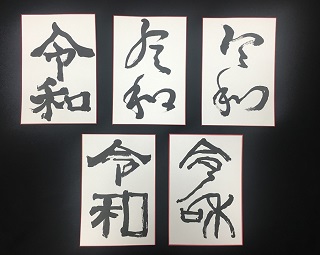 令和
令和
令和
令和
令和